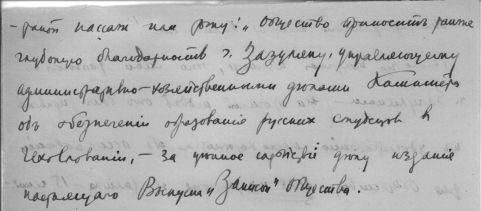 пассаж или "Общество приносит также
глубокую благодарность г. Зазуляку, управляющему
административно-хозяйственными делами Комитета
объ обезпеченiи образованiя русских студентов в
Чехословакiи, - за ценное содействiе делу изданiя
настоящаго Выпуска "Записок" Общества